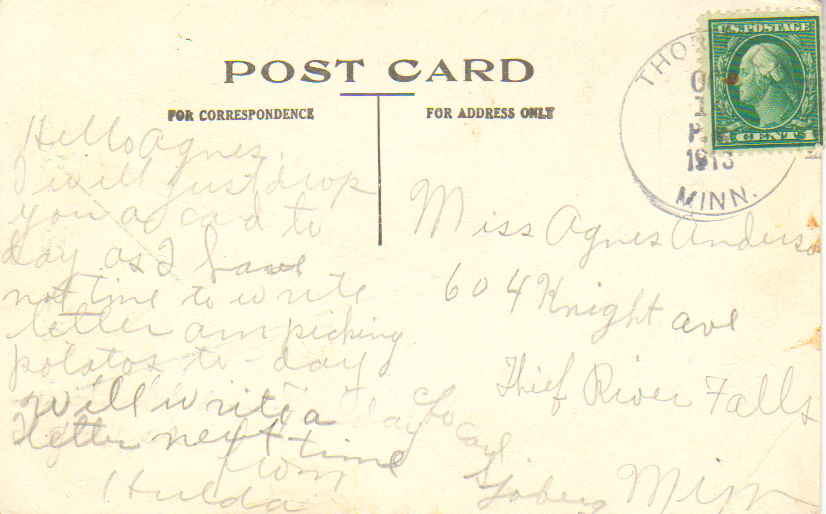 POST CARD
FOR CORRESPONDENCE
FOR ADDRESS ONLY
U.S. POSTAGE
CENTS
1913
MINN.
Hello Agnes
I will just drop
you a cad to
day as I have
not time to write
letter am picking
potatos to-day
will write a
letter next time
from
Hulda
Miss Agnes Anderso
604 Knight ave
Thief River Falls
c/o Carl
Sjoberg
Minn